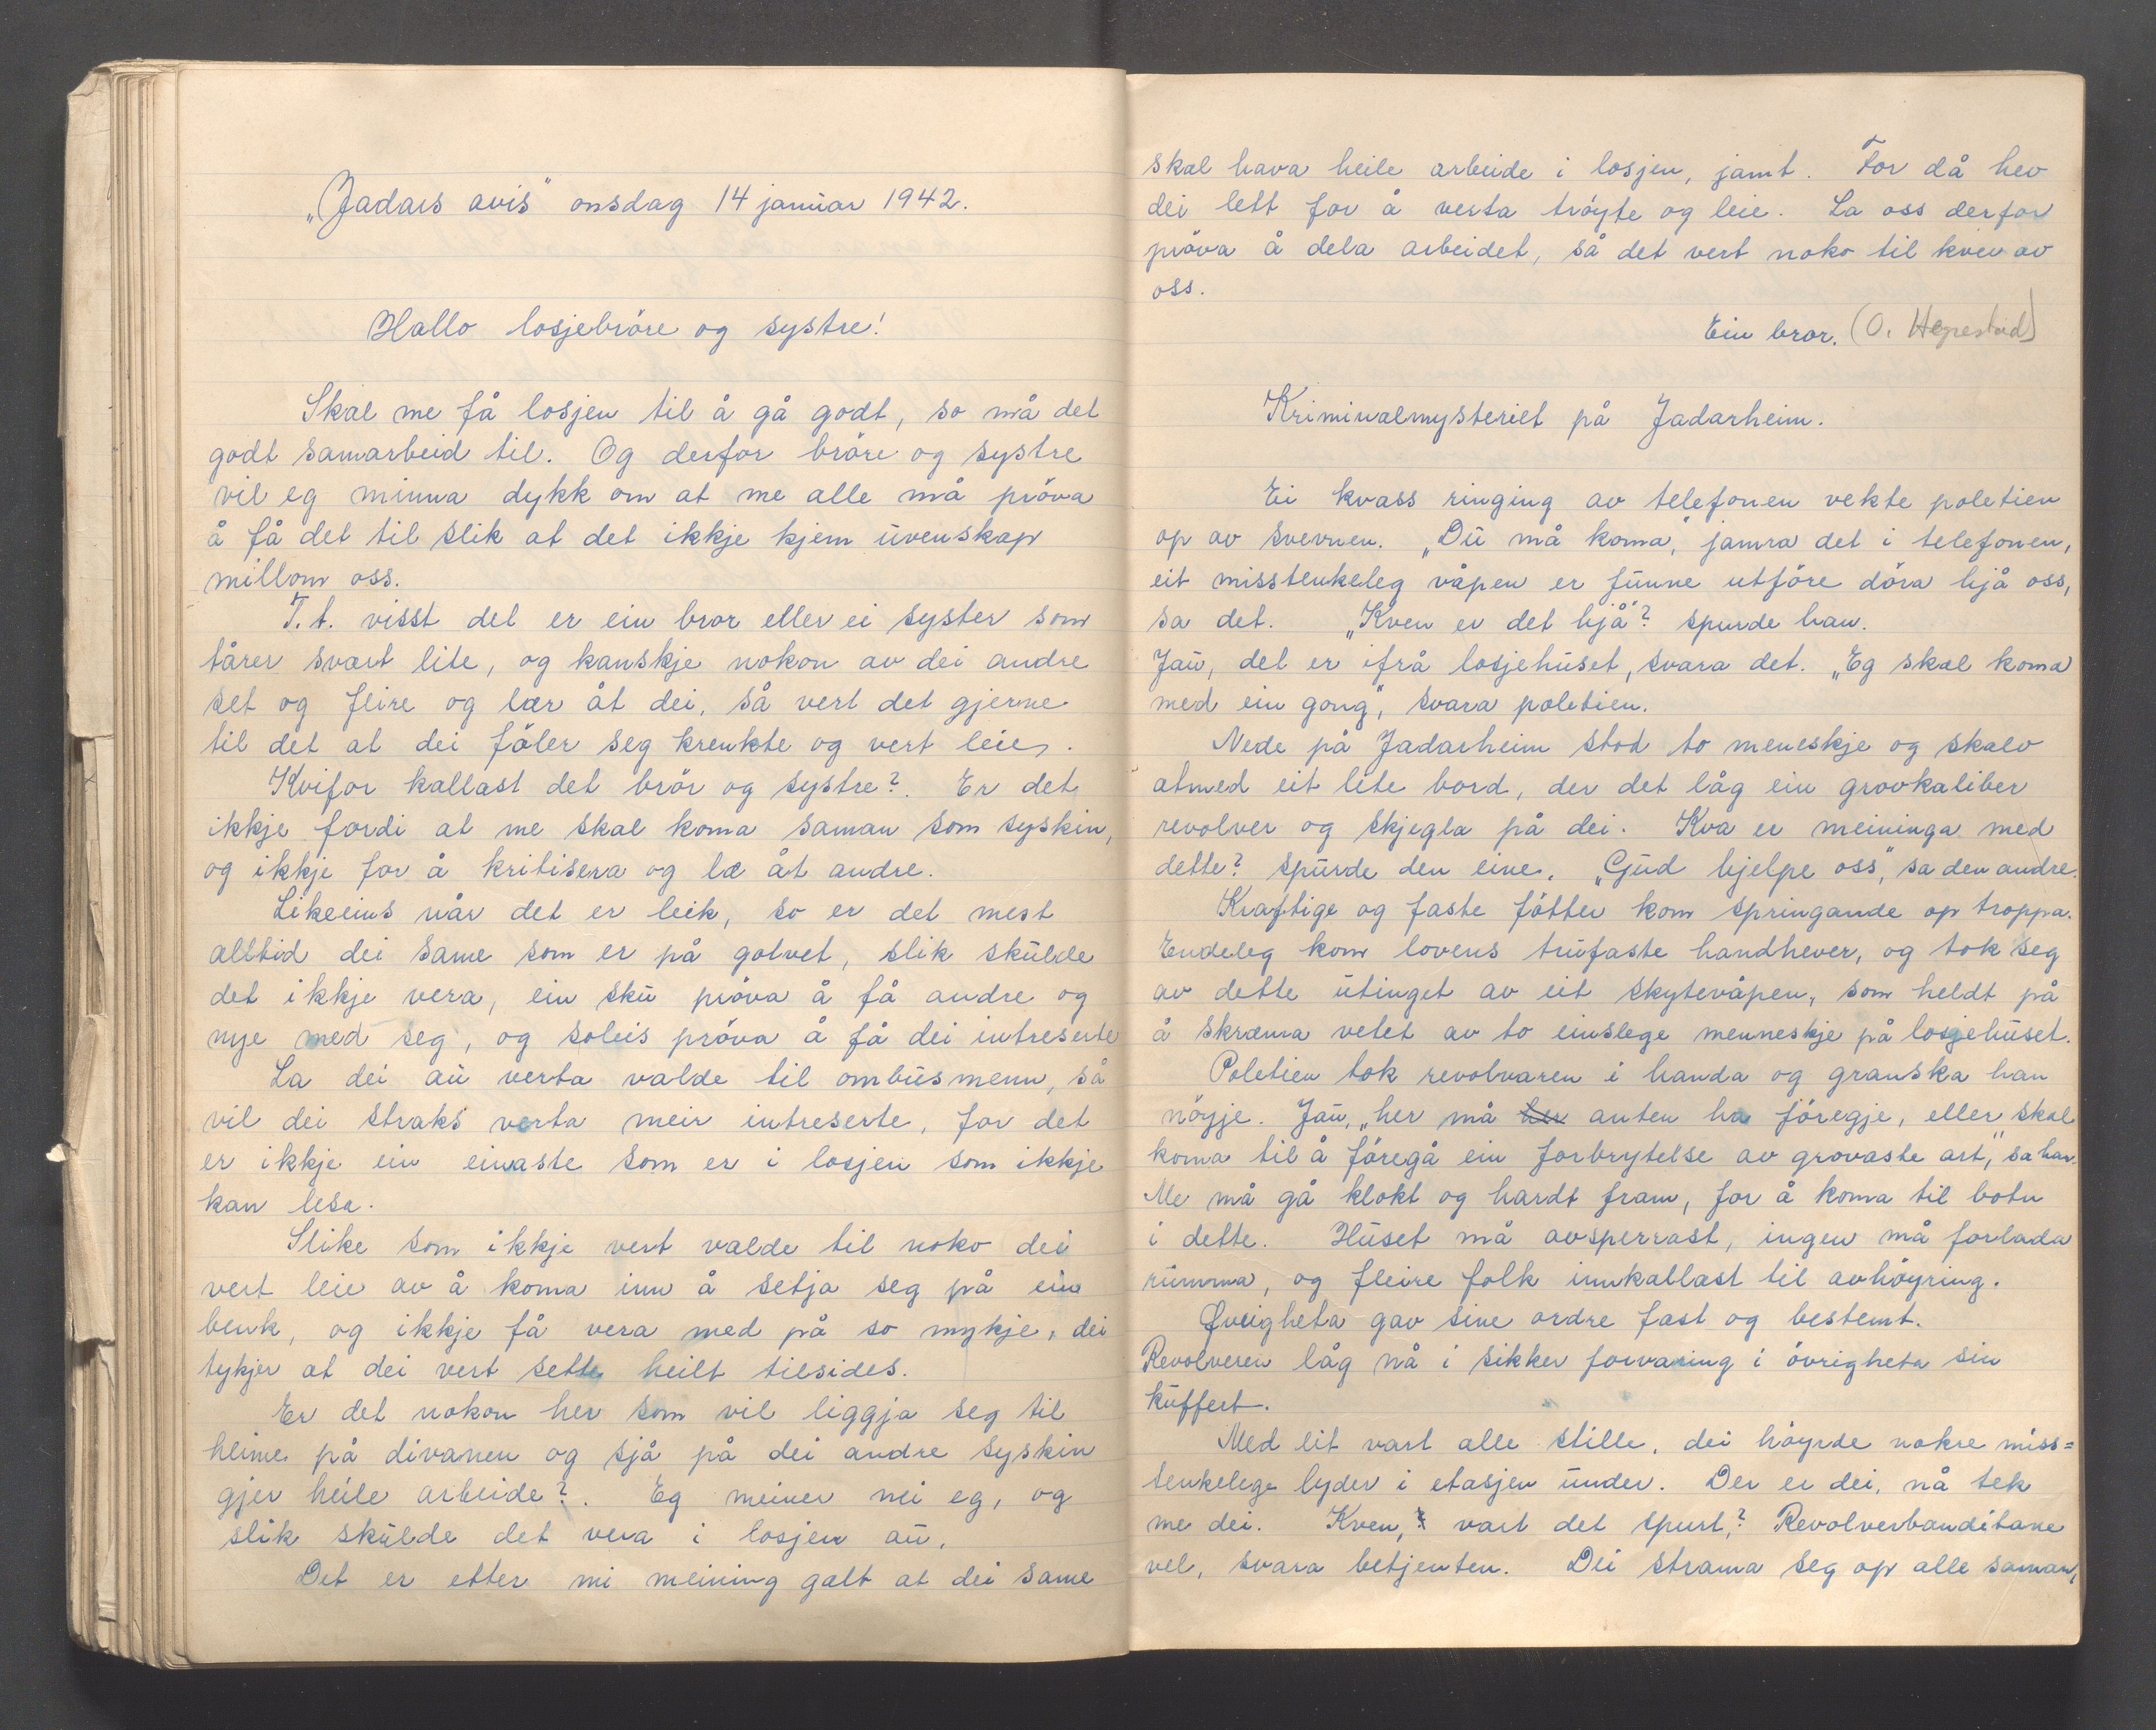 „Jadars avis" onsdag 14 januar 1942.
Hallo losjebröre og systre!
Skal me få losjen til å gå godt, so må det
godt samarbeid til. Og derfor bröre og systre
vil eg minna dykk om at me alle må pröva
å få det til slik at det ikkje kjem uvenskap
millom oss.
T.t. visst det er ein bror eller ei syster som
tårer svært lite, og kanskje nokon av dei andre
set og fleire og lær åt dei, så vert det gjerne
til det at dei föler seg krenkte og vert leie.
Kvifor kallast det brör og systre?. Er det
ikkje fordi at me skal koma saman som syskin,
og ikkje for å kritisera og læ åt andre.
Likeeins når det er leik, so er det mest
alltid dei same som er på golvet, slik skulde
det ikkje vera, ein sku pröva å få andre og
nye med seg, og soleis pröva å få dei intreserte
La dei au verta valde til ombusmenn, så
vil dei straks verta meir intreserte, for det
er ikkje ein einaste som er i losjen som ikkje
kan lesa.
Slike som ikkje vert valde til noko dei
vert leie av å koma inn å setja seg på ein
benk, og ikkje få vera med på so mykje, dei
tykjer at dei vert sette heilt tilsides.
Er det nokon her som vil liggja seg til
heime på divanen og sjå på dei andre syskin
gjer heile arbeide?. Eg meiner nei eg, og
slik skulde det vera i losjen au.
Det er etter mi meining galt at dei same
skal hava heile arbeide i losjen, jamt. For då hev
dei lett for å verta tröyte og leie. La oss derfor
pröva å dela arbeidet, så det vert noko til kver av
oss.
Ein bror. (O. Hegrestad)
Kriminalmysteriet på Jadarheim.
Ei kvass ringing av telefonen vekte poletien
op av svevnen. „Du må koma," jamra det i telefonen,
eit misstenkeleg våpen er funne utföre döra hjå oss,
sa det. „Kven er det hjå"? spurde han.
Jau, det er ifrå losjehuset, svara det. „Eg skal koma
med ein gong", svara poletien.
Nede på Jadarheim stod to meneskje og skalv
atmed eit lite bord, der det låg ein grovkaliber
revolver og skjegla på dei. Kva er meininga med
dette? spurde den eine. „Gud hjelpe oss", sa den andre.
Kraftige og faste fötter kom springande op troppa.
Endeleg kom lovens trufaste handhever, og tok seg
av dette utinget av eit skytevåpen, som heldt på
å skræma vetet av to einslege menneskje på losjehuset.
Poletien tok revolvaren i handa og granska han
nöyje. Jau, „her må her anten ha föregje, eller skal
koma til å föregå ein forbrytelse av grovaste art," sa han.
Me må gå klokt og hardt fram, for å koma til botn
i dette. Huset må avsperrast, ingen må forlada
rumma, og fleire folk innkallast til avhöyring.
Øvrigheta gav sine ordre fast og bestemt.
Revolveren låg nå i sikker forvaring i övrigheta sin
kuffert.
Med eit vart alle stille, dei höyrde nokre miss=
tenkelege lyder i etasjen under. Der er dei, nå tek
me dei. Kven, vart det spurt,? Revolverbanditane
vel, svara betjenten. Dei strama seg op alle saman,